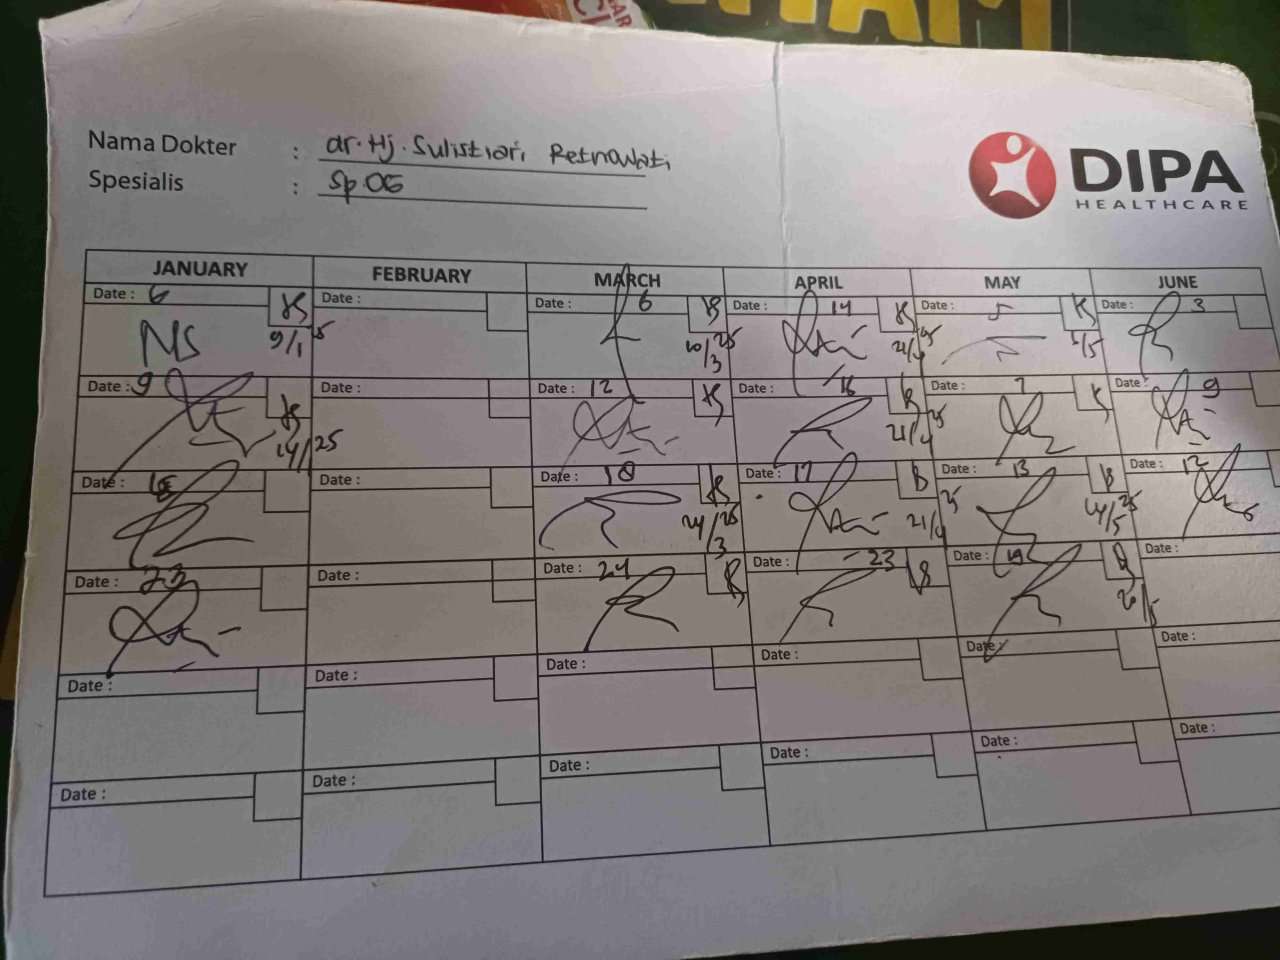 Nama Dokter : dr. Hj. Sulistiari Retnowati
Spesialis : Sp OG
DIPA
HEALTHCARE
JANUARY FEBRUARY MARCH APRIL MAY JUNE
Date : 6 Date : Date : 6 Date : 14 Date : 5 Date : 3
NS 9/1 25 10/3 25 21/4 25 5/5
Date : 9 Date : Date : 12 Date : 16 Date : 7 Date : 9
14/1 25 21/4 25
Date : Date : Date : 18 Date : 17 Date : 13 Date : 12
24/3 25 21/4 25 14/5 25
Date : 23 Date : Date : 24 Date : 23 Date : 19 Date :
20/5
Date : Date : Date : Date : Date : Date :
Date : Date : Date : Date : Date : Date :